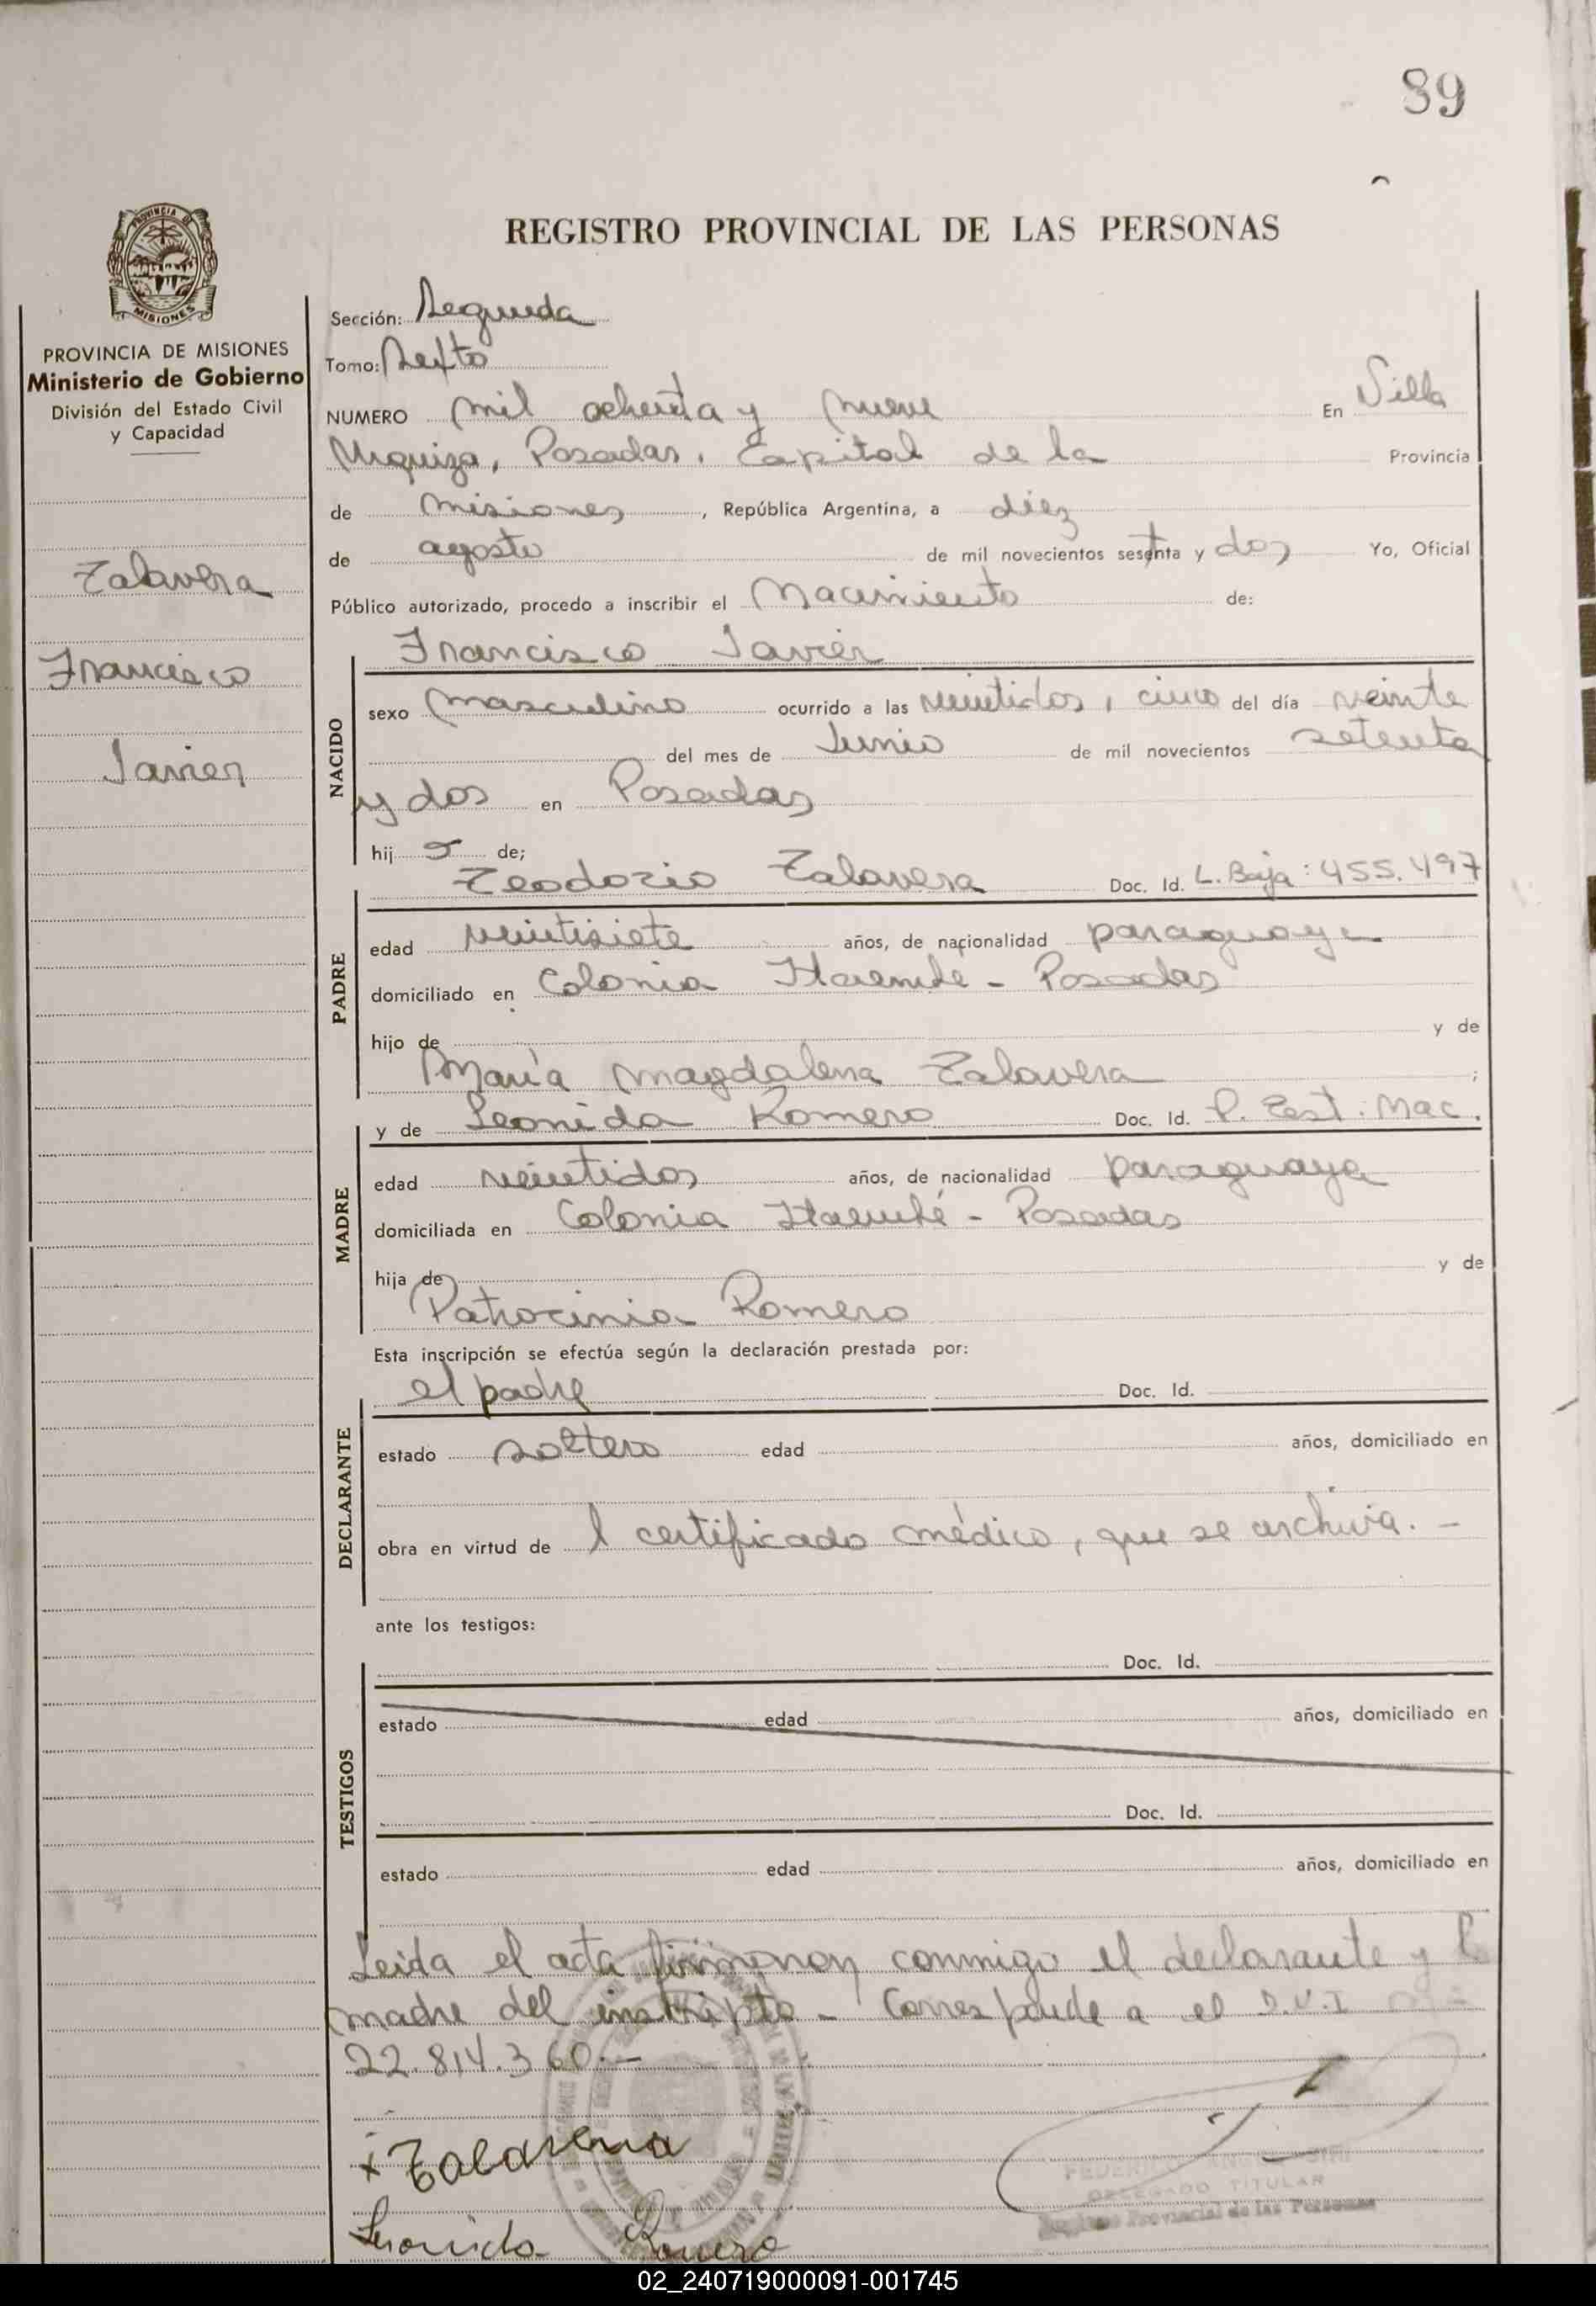 89
REGISTRO PROVINCIAL DE LAS PERSONAS
PROVINCIA DE MISIONES
PROVINCIA DE MISIONES
Ministerio de Gobierno
División del Estado Civil
y Capacidad
Talavera
Francisco
Javier
Sección: Segunda
Tomo: Sexto
NUMERO mil ochenta y nueve En Villa
Urquiza, Posadas, Capital de la Provincia
de Misiones, República Argentina, a diez
de agosto de mil novecientos sesenta y dos Yo, Oficial
Público autorizado, procedo a inscribir el Nacimiento de:
Francisco Javier
NACIDO
sexo masculino ocurrido a las veintidos, cinco del día veinte
del mes de Junio de mil novecientos setenta
y dos en Posadas
hij o de;
Teodozio Talavera Doc. Id. L. Baja: 455.497
PADRE
edad veintisiete años, de nacionalidad paraguaya
domiciliado en Colonia Itaembé - Posadas
hijo de y de
María Magdalena Talavera ;
y de Leonida Romero Doc. Id. P. Test. Nac.
MADRE
edad veintidos años, de nacionalidad paraguaya
domiciliada en Colonia Itaembé - Posadas
hija de y de
Patrocinia Romero
Esta inscripción se efectúa según la declaración prestada por:
el padre Doc. Id.
DECLARANTE
estado soltero edad años, domiciliado en
obra en virtud de l certificado médico, que se archiva. -
ante los testigos:
Doc. Id.
TESTIGOS
estado edad años, domiciliado en
Doc. Id.
estado edad años, domiciliado en
Leida el acta firmaron conmigo el declarante y la
madre del inscripto - Corresponde a el D.U.I
22.814.360.-
x Talavera
Leonida Romero
DELEGADO TITULAR
Registro Provincial de las Personas
02_240719000091-001745